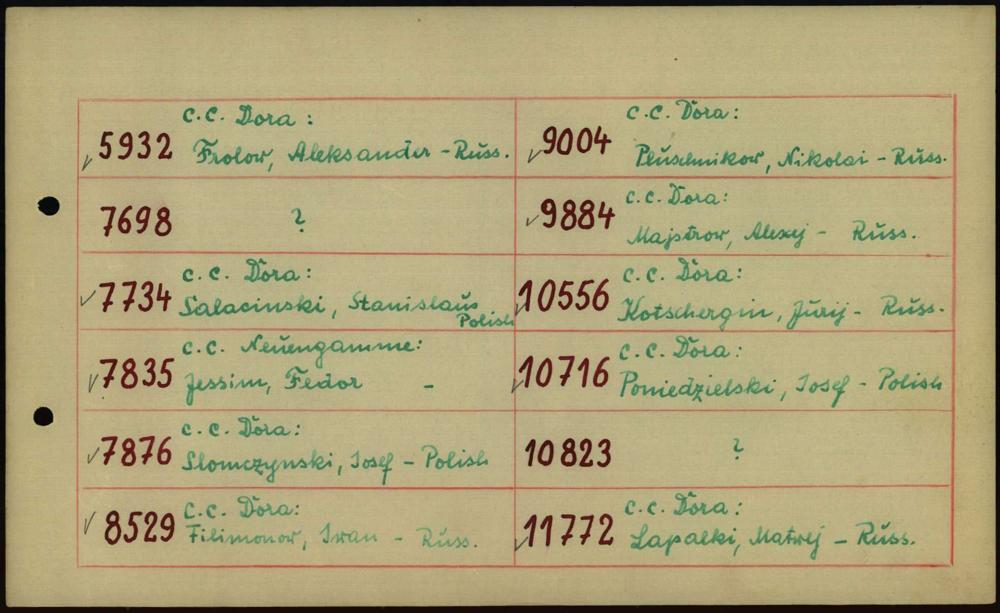 c.c. Dora:
✓5932 Frolow, Aleksander - Russ.
7698 ?
c.c. Dora:
✓7734 Salacinski, Stanislaus
Polish
c.c. Neuengamme:
✓7835 Jessim, Fedor -
c.c. Dora:
✓7876 Slomczynski, Josef - Polish
c.c. Dora:
✓8529 Filimonow, Iwan - Russ.
c.c. Dora:
✓9004 Pluschnikow, Nikolai - Russ.
c.c. Dora:
✓9884 Majstrow, Alexej - Russ.
c.c. Dora:
✓10556 Kotschergin, Jurij - Russ.
c.c. Dora:
✓10716 Poniedzielski, Josef - Polish
10823 ?
c.c. Dora:
✓11772 Lapatki, Matwej - Russ.